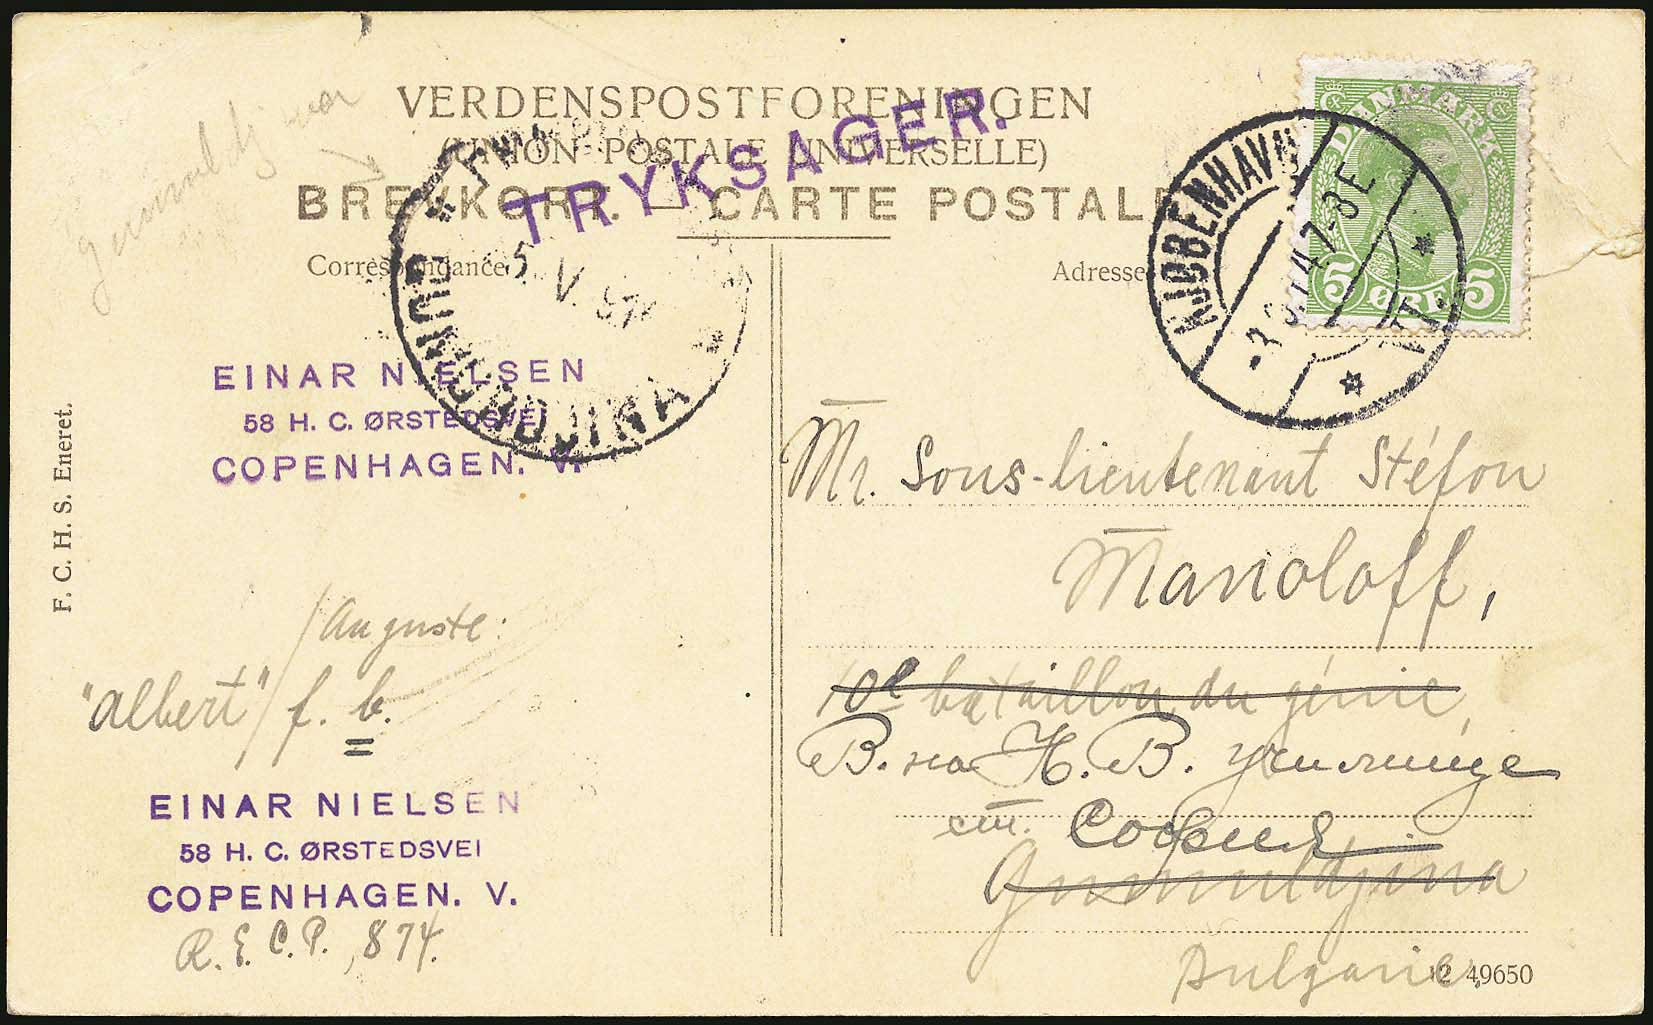 VERDENSPOSTFORENINGEN
(UNION POSTALE UNIVERSELLE)
BREVKORT. — CARTE POSTALE
TRYKSAGER.
Correspondance
Adresse
DANMARK
5 ØRE 5
KJØBENHAVN
V.
GUMURDJINA
5. V
EINAR NIELSEN
58 H. C. ØRSTEDSVEI
COPENHAGEN. V.
F. C. H. S. Eneret.
Auguste:
"Albert" / f. b.
EINAR NIELSEN
58 H. C. ØRSTEDSVEI
COPENHAGEN. V.
R. E. C. P., 874.
Mr. Sous-lieutenant Stéfon
Manoloff,
10e bataillon du génie,
В. на Н. В. училище
София
Gumuldjina
Bulgarie.
12 49650